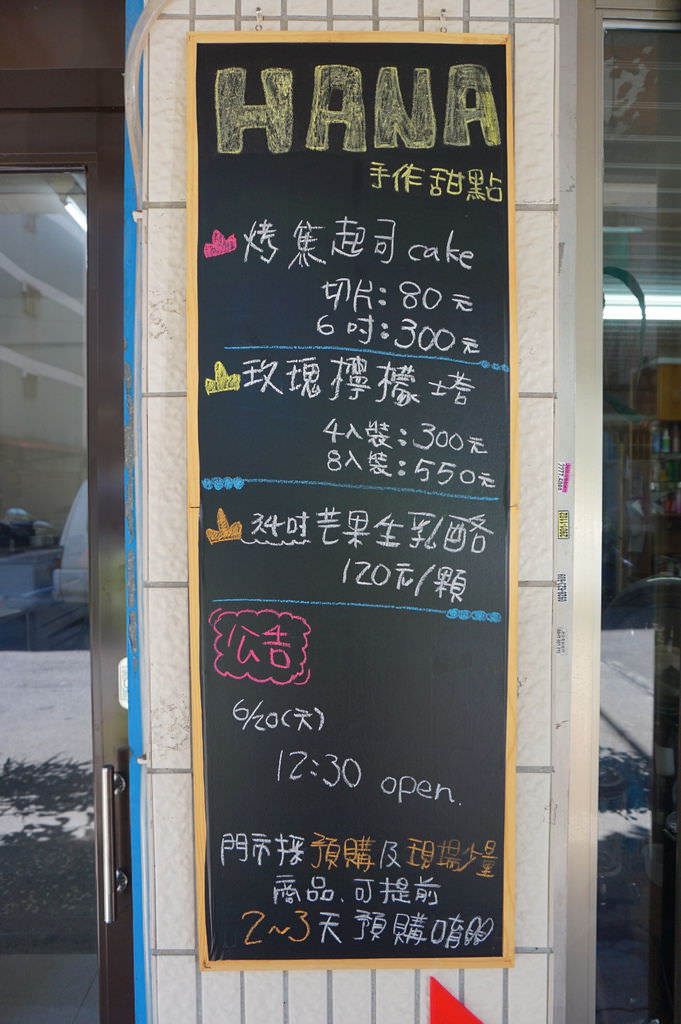 HANA
手作甜點
烤焦起司 cake
切片:80元
6吋:300元
玫瑰檸檬塔
4入裝:300元
8入裝:550元
34吋芒果生乳酪
120元/顆
公告
6/20(天)
12:30 open.
門市採預購及現場少量
商品、可提前
2~3天預購唷